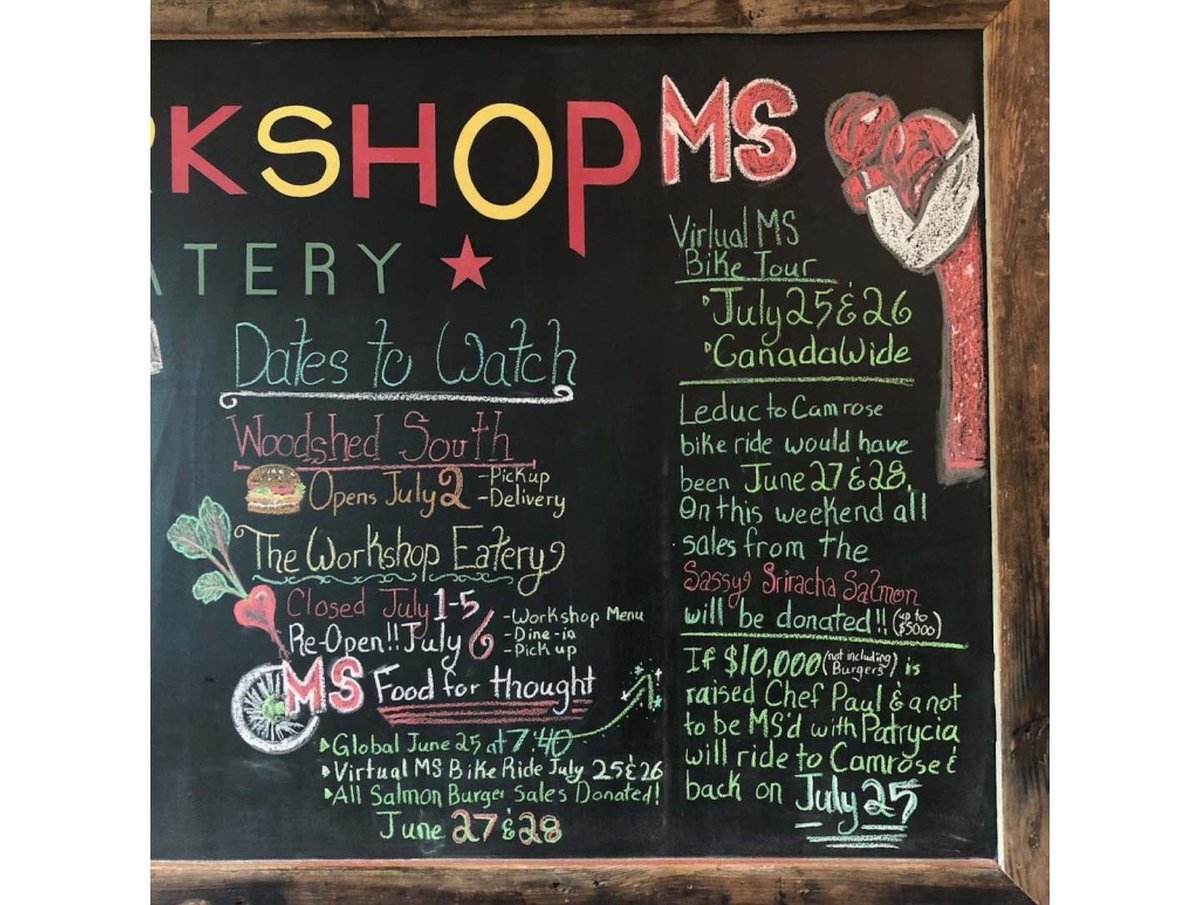 RKSHOP
ATERY
Dates to Watch
Woodshed South
Opens July 2
-Pickup
-Delivery
The Workshop Eatery
Closed July 1-5
Re-Open!! July 6
-Workshop Menu
-Dine-in
-Pick up
MS Food for thought
Global June 25 at 7:40
Virtual MS Bike Ride July 25 & 26
All Salmon Burger Sales Donated!
June 27 & 28
MS
Virtual MS
Bike Tour
July 25 & 26
Canada Wide
Leduc to Camrose
bike ride would have
been June 27 & 28.
On this weekend all
sales from the
Sassy Sriracha Salmon
will be donated!! (up to $5000)
If $10,000 (not including Burgers) is
raised Chef Paul & a not
to be MS'd with Patrycia
will ride to Camrose &
back on July 25